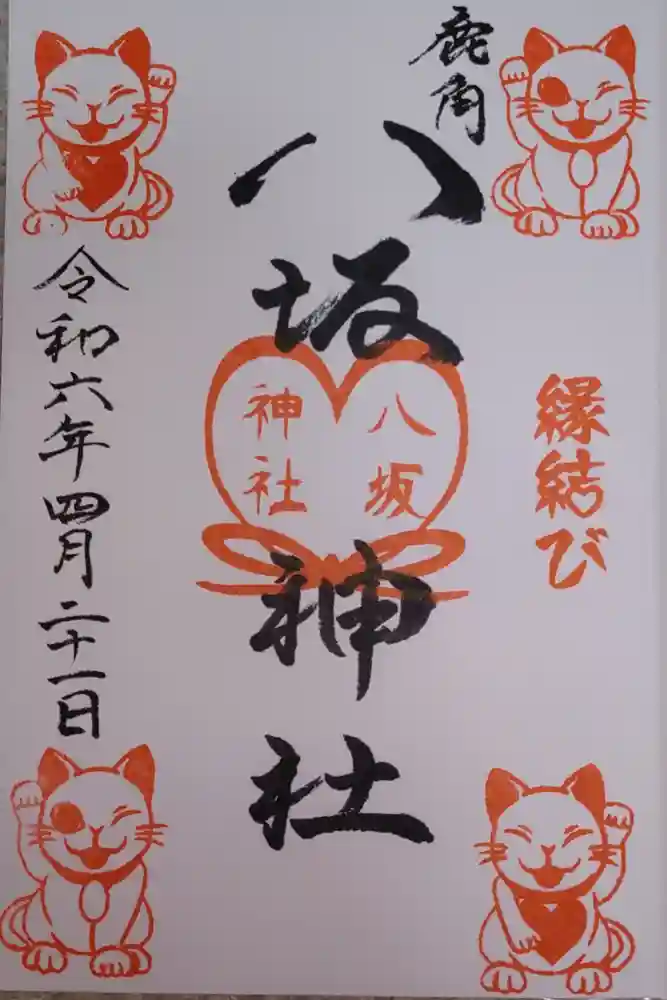 鹿角
八坂神社
八坂
神社
縁結び
令和六年四月二十一日